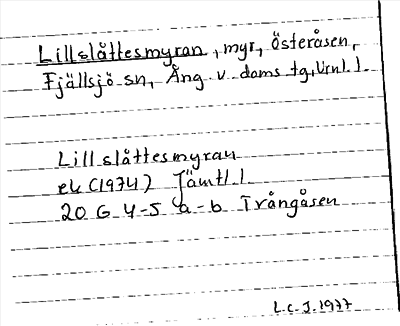 Lillslåttesmyran, myr, Österåsen,
Fjällsjö sn, Ång. v. doms tg, Vrnl. l.
Lillslåttesmyran
ek (1974) Jämtl. l
20 G 4-5 a-b Trångåsen
L.C.J. 1977